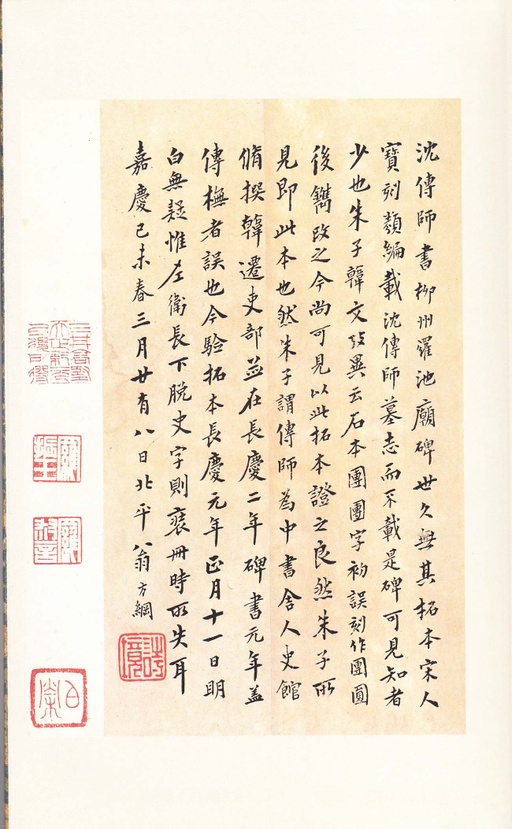 沈傳師書柳州羅池廟碑世久無其拓本宋人
寶刻類編載沈傳師墓志而不載是碑可見知者
少也朱子韓文攷異云石本團團字初誤刻作團圓
後鐫改之今尚可見以此拓本證之良然朱子所
見即此本也然朱子謂傳師為中書舍人史館
脩撰韓遷吏部並在長慶二年碑書元年蓋
傳橅者誤也今驗拓本長慶元年正月十一日明
白無疑惟左衛長下脫史字則裝冊時所失耳
嘉慶己未春三月廿有八日北平翁方綱